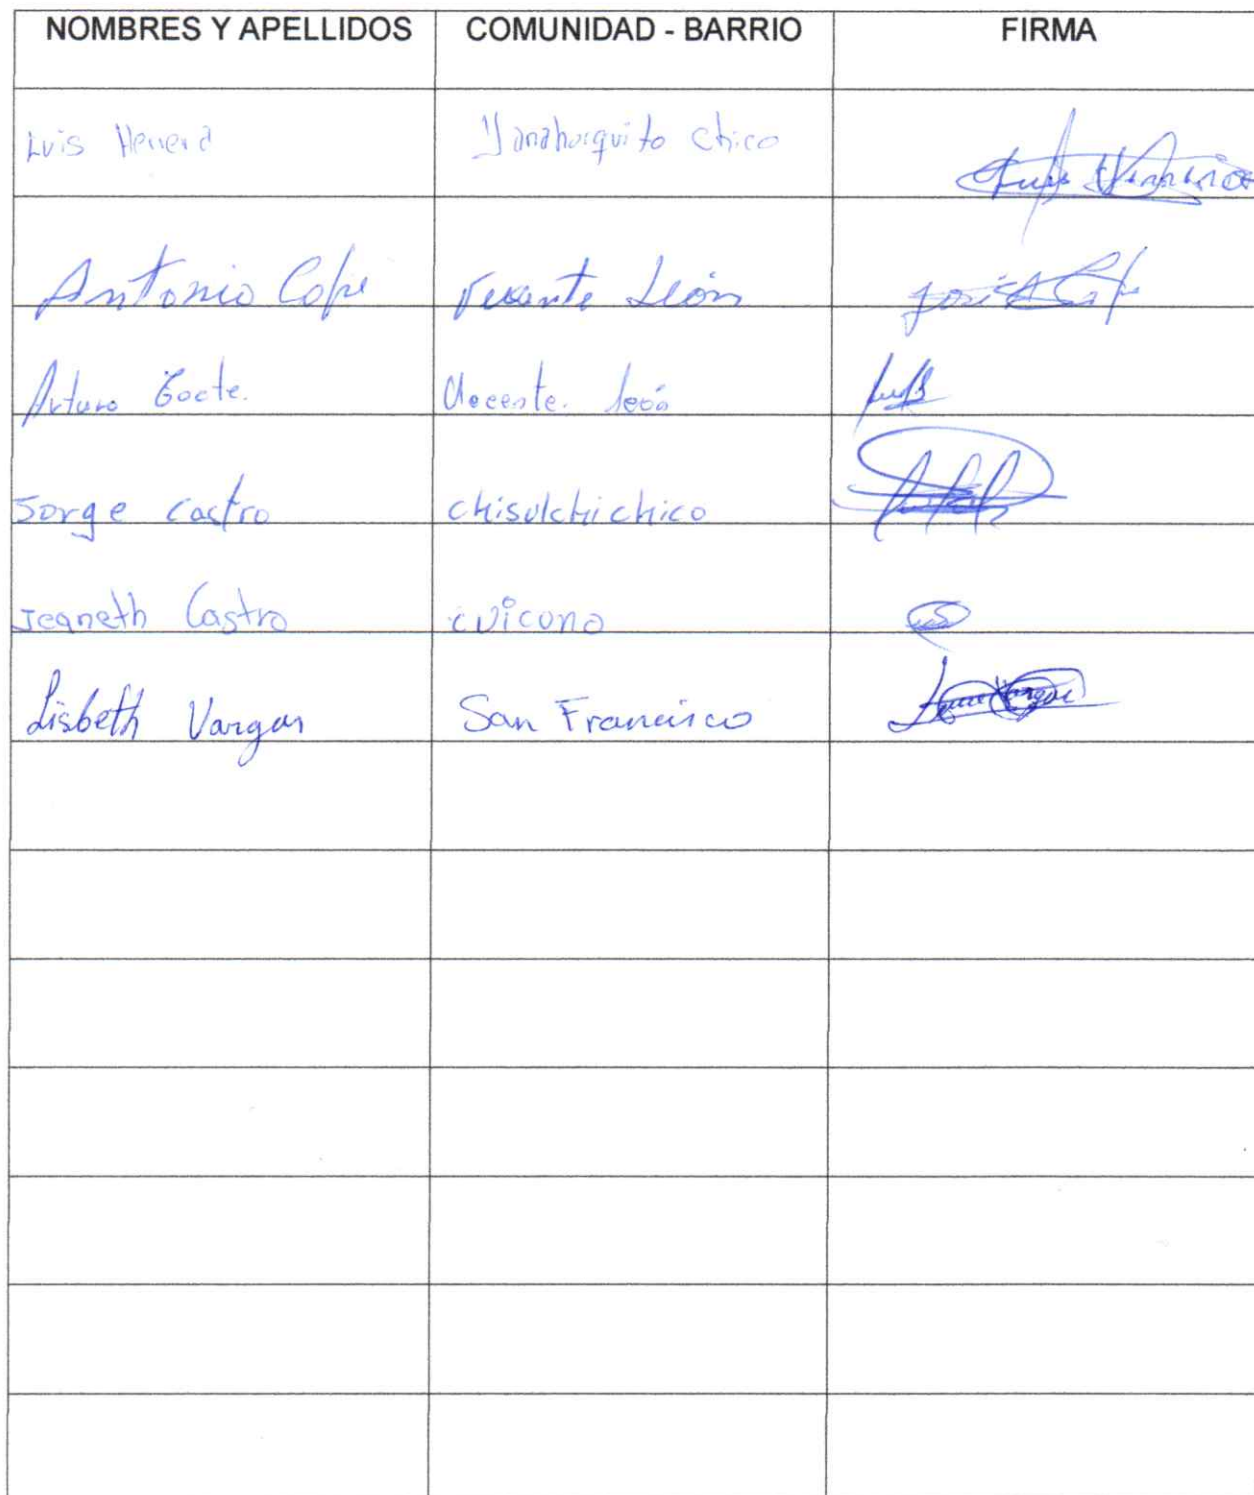 NOMBRES Y APELLIDOS COMUNIDAD - BARRIO FIRMA
Luis Herrera Yanahurquito Chico
Antonio Cofre Vicente León José A Cofre
Arturo Vicente León
Jorge Castro Chisulchi chico
Jeaneth Castro Cuicuno
Lisbeth Vargas San Francisco